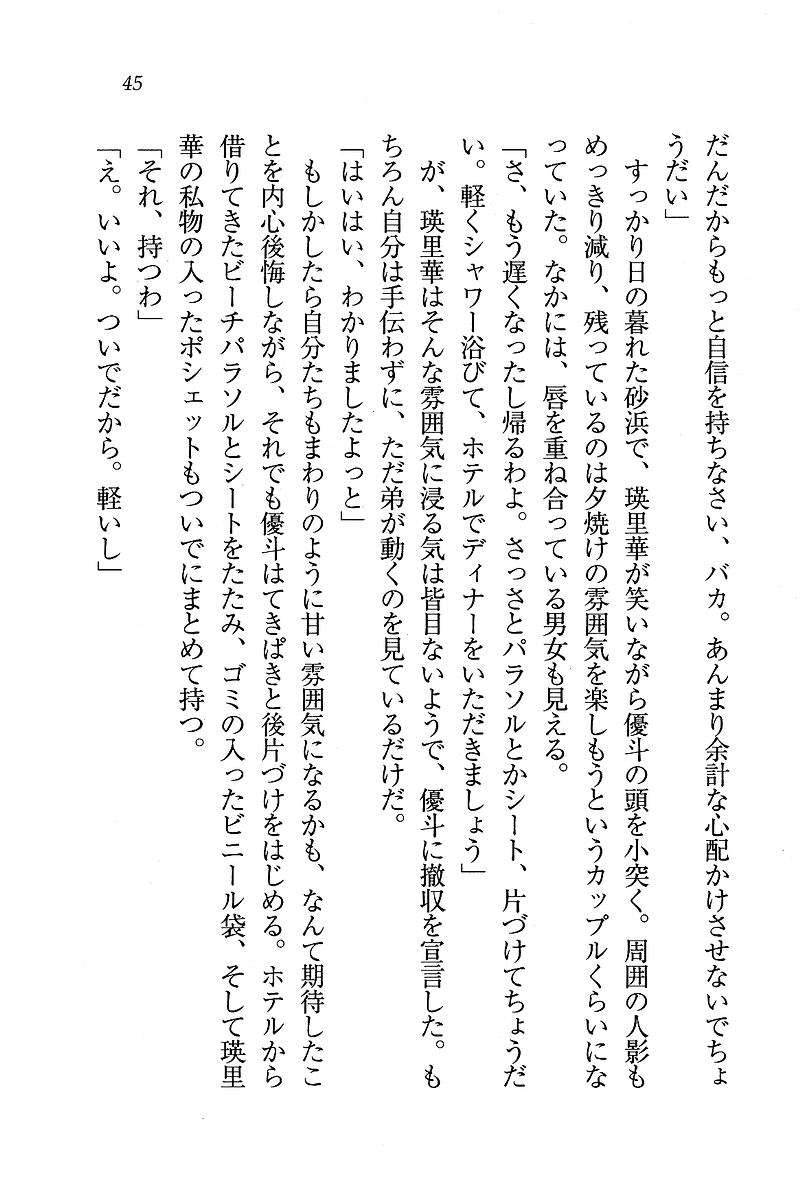 45
だんだからもっと自信を持ちなさい、バカ。あんまり余計な心配かけさせないでちょ
うだい」
すっかり日の暮れた砂浜で、瑛里華が笑いながら優斗の頭を小突く。周囲の人影も
めっきり減り、残っているのは夕焼けの雰囲気を楽しもうというカップルくらいにな
っていた。なかには、唇を重ね合っている男女も見える。
「さ、もう遅くなったし帰るわよ。さっさとパラソルとかシート、片づけてちょうだ
い。軽くシャワー浴びて、ホテルでディナーをいただきましょう」
が、瑛里華はそんな雰囲気に浸る気は皆目ないようで、優斗に撤収を宣言した。も
ちろん自分は手伝わずに、ただ弟が動くのを見ているだけだ。
「はいはい、わかりましたよっと」
もしかしたら自分たちもまわりのように甘い雰囲気になるかも、なんて期待したこ
とを内心後悔しながら、それでも優斗はてきぱきと後片づけをはじめる。ホテルから
借りてきたビーチパラソルとシートをたたみ、ゴミの入ったビニール袋、そして瑛里
華の私物の入ったポシェットもついでにまとめて持つ。
「それ、持つわ」
「え。いいよ。ついでだから。軽いし」